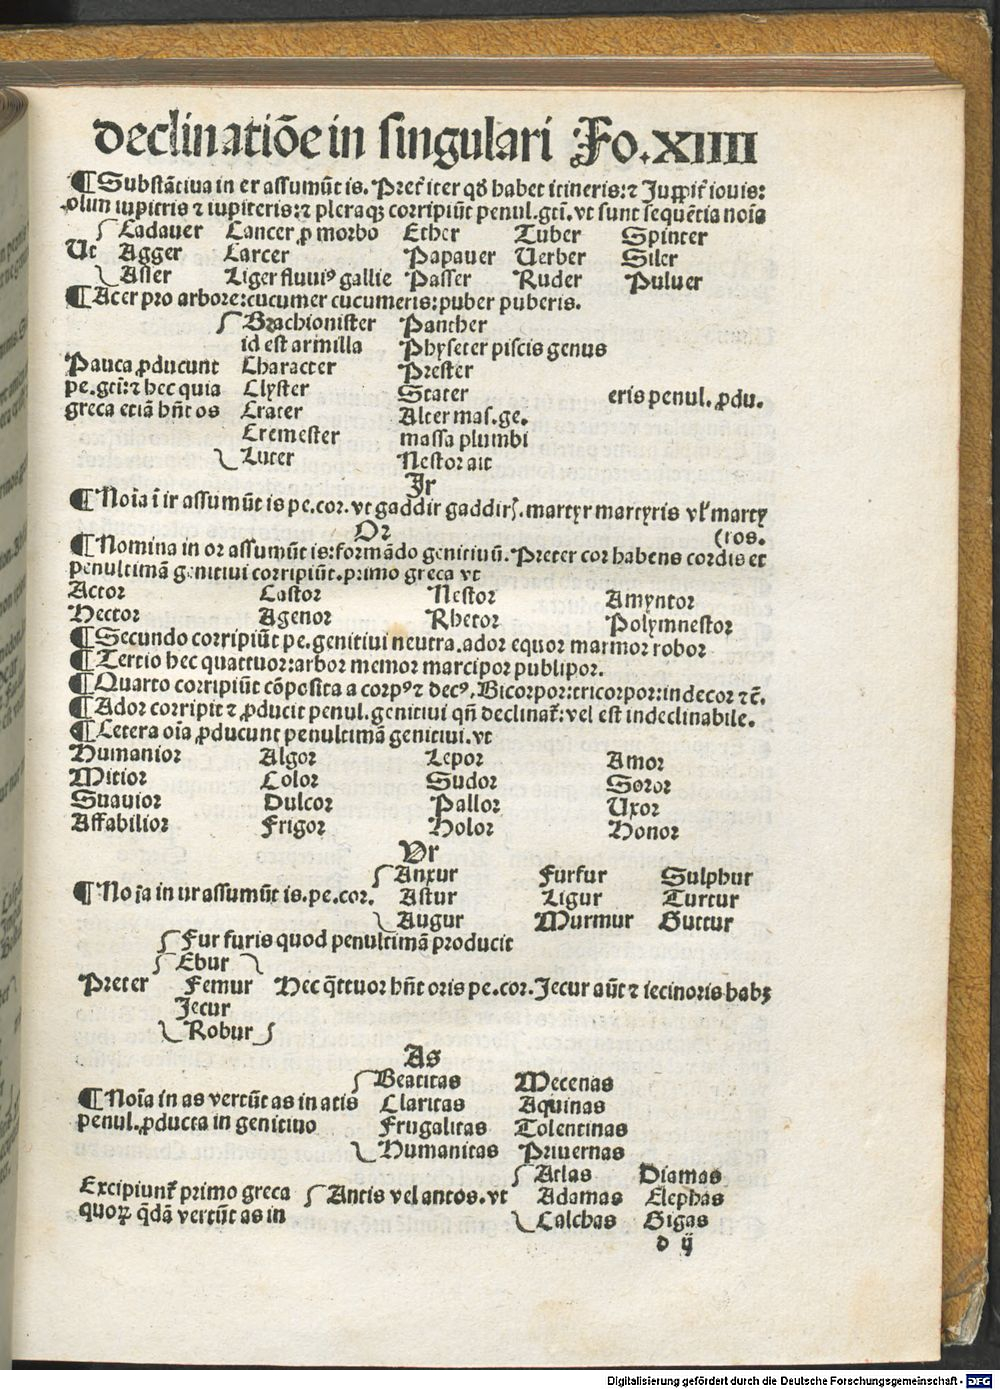 declinatiōe in singulari Fo.XIIII
¶Substātiua in er assumūt is. Preť iter qđ habet itineris: ⁊ Juppiť iouis:
olim iupitris ⁊ iupiteris: ⁊ pleraqȝ corripiūt penul.gtī. vt sunt sequētia noīa
Cadauer Cancer ꝓ morbo Ether Tuber Spinter
Ut Agger Carcer Papauer Verber Siler
Asser Liger fluuiꝰ gallie Passer Ruder Puluer
¶Acer pro arbore: cucumer cucumeris: puber puberis.
Brachionister Panther
id est armilla Physeter piscis genus
Pauca ꝓducunt Character Prester
pe.gtī: ⁊ hec quia Clyster Stater eris penul. ꝓdu.
greca etiā hn̄t os Crater Alter mas.ge.
Cremester massa plumbi
Luter Nestor ait
Ir
¶Noīa ī ir assumūt is pe.cor. vt gaddir gaddirꝭ. martyr martyris vľ marty
Or (ros.
¶Nomina in or assumūt is: formādo genitiuū. Preter cor habens cordis et
penultimā genitiui corripiūt. primo greca vt
Actor Castor Nestor Amyntor
Hector Agenor Rhetor Polymnestor
¶Secundo corripiūt pe. genitiui neutra. ador equor marmor robor
¶Tertio hec quattuor: arbor memor marcipor publipor.
¶Quarto corripiūt cōposita a corpꝰ ⁊ decꝰ, Bicorpor: tricorpor: indecor ⁊c̄.
¶Ador corripit ⁊ ꝓducit penul. genitiui qn̄ declinať: vel est indeclinabile.
¶Cetera oīa ꝓducunt penultimā genitiui. vt
Humanior Algor Lepor Amor
Mitior Color Sudor Soror
Suauior Dulcor Pallor Uxor
Affabilior Frigor Holor Honor
Vr
Anxur Furfur Sulphur
¶Noīa in ur assumūt is. pe.cor. Astur Ligur Turtur
Augur Murmur Guttur
Fur furis quod penultimā producit
Ebur
Preter Femur Hec q̄ttuor hn̄t oris pe.cor. Jecur aūt ⁊ iecinoris habȝ
Jecur
Robur
As
Beatitas Mecenas
¶Noīa in as vertūt as in atis Claritas Aquinas
penul. ꝓducta in genitiuo Frugalitas Tolentinas
Humanitas Priuernas
Atlas Diamas
Excipiunť primo greca Antis vel antos. vt Adamas Elephas
quoꝝ q̄dā vertūt as in Calchas Gigas
d ij
Digitalisierung gefördert durch die Deutsche Forschungsgemeinschaft - DFG